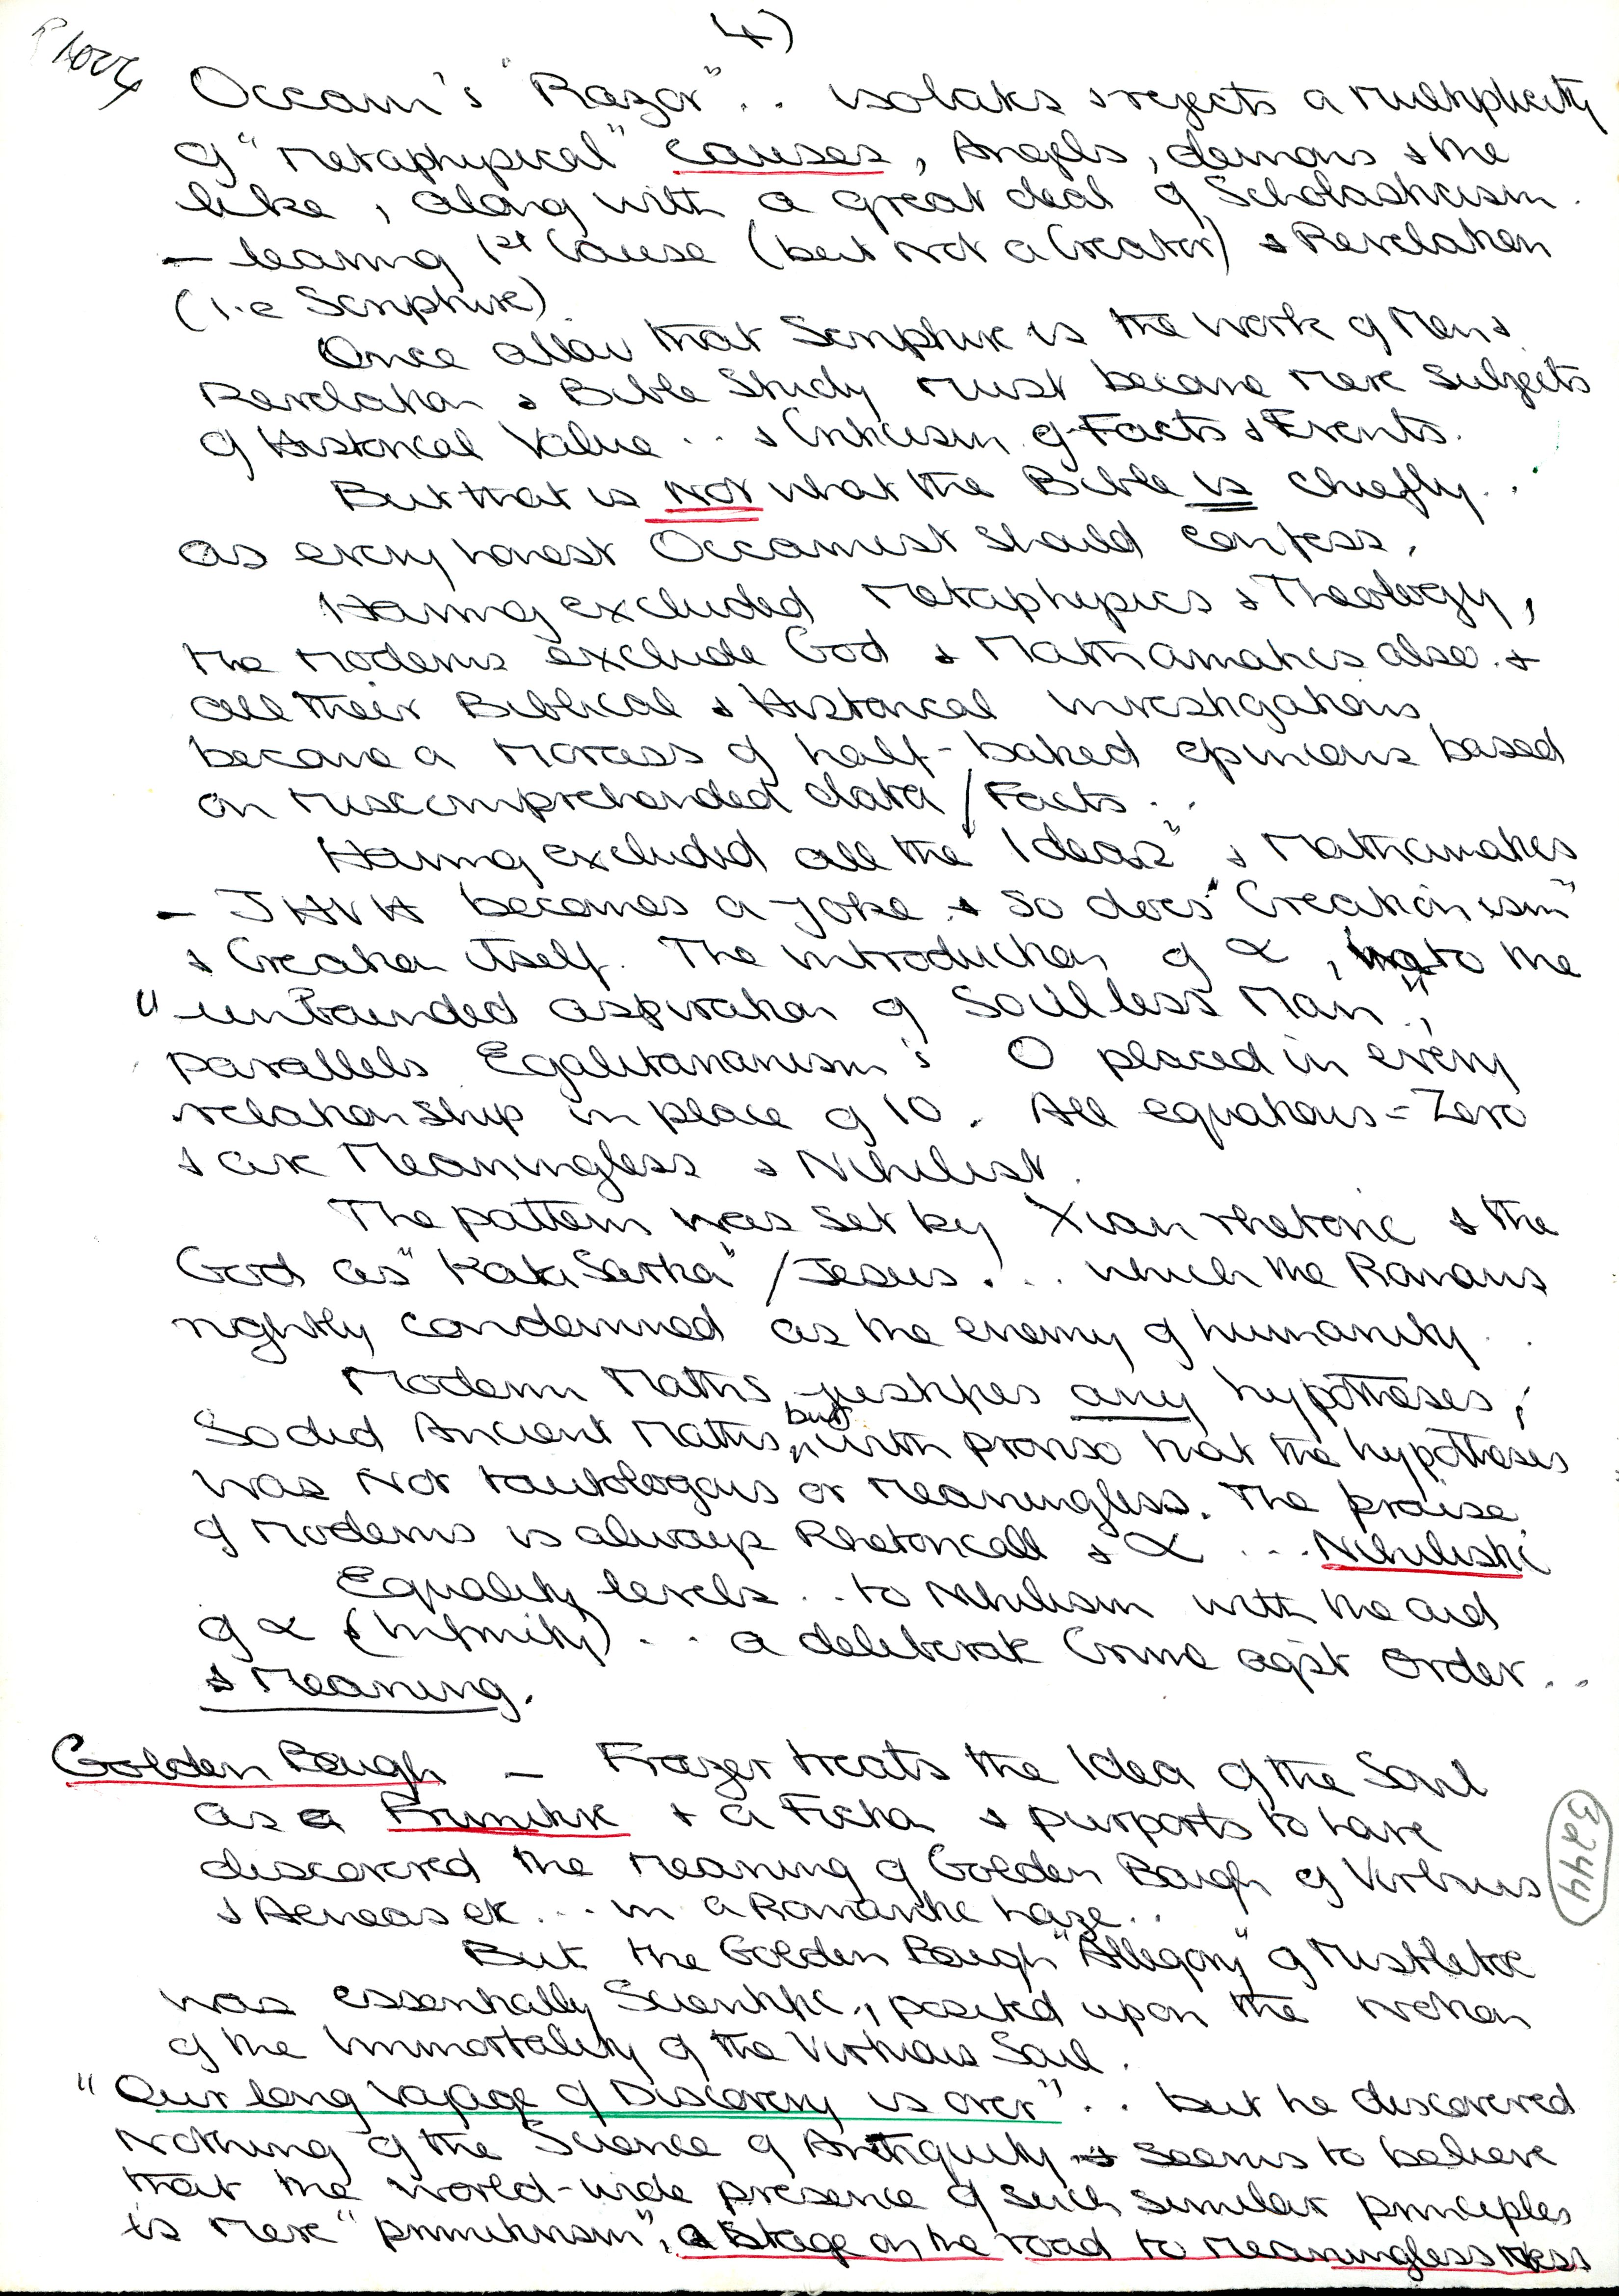 4)
Occam's "Razor" .. isolates & rejects a multiplicity
of "Metaphysical" causes, Angels, demons & the
like, along with a great deal of Scholasticism.
— leaving 1st Cause (but not a Creator) & Revelation
(i.e Scripture).
Once allow that Scripture is the work of Men &
Revelation & Bible Study must become mere subjects
of Historical Value ... & Criticism of Facts & Events.
But that is NOT what the Bible is chiefly ..
as every honest Occamist should confess.
Having excluded Metaphysics & Theology,
the Moderns exclude God & Mathamatics also. &
all their Biblical & Historical investigations
become a Morass of half-baked opinions based
on Miscomprehended data / Facts ..
Having excluded all the "Ideas" & Mathematics
— JHVH becomes a joke & so does "Creationism"
& Creation itself. The introduction of ∝, to the
"unbounded aspiration of Soulless Man",
parallels Egalitarianism's O placed in every
relationship in place of 10. All equations = Zero
& are Meaningless & Nihilist.
The pattern was set by Xian rhetoric & the
God as / Jesus ... which the Romans
rightly condemned as the enemy of humanity ..
Modern Maths justifies any hypotheses;
So did Ancient Maths, but with proviso that the hypothesis
was Not tautologous or Meaningless. The praise
of Moderns is always Rhetoricall & ∝ ... Nihilistic
Equality levels .. to Nihilism with the aid
of ∝ (Infinity) .. a deliberate Crime agst Order ..
& Meaning.
Golden Bough — Frazer treats the Idea of the Soul
as a Primitive & a Fiction & purports to have
discovered the Meaning of Golden Bough of
& Aeneas etc ... in a Romantic haze ..
But the Golden Bough "Allegory" of Mistletoe
was essentially Scientific, posited upon the notion
of the Immortality of the Virtuous Soul.
"Our long Voyage of Discovery is over" .. but he discovered
Nothing of the Science of Antiquity & seems to believe
that the world-wide presence of such similar principles
is mere "primitivism", a Stage on the road to Meaninglessness
3244